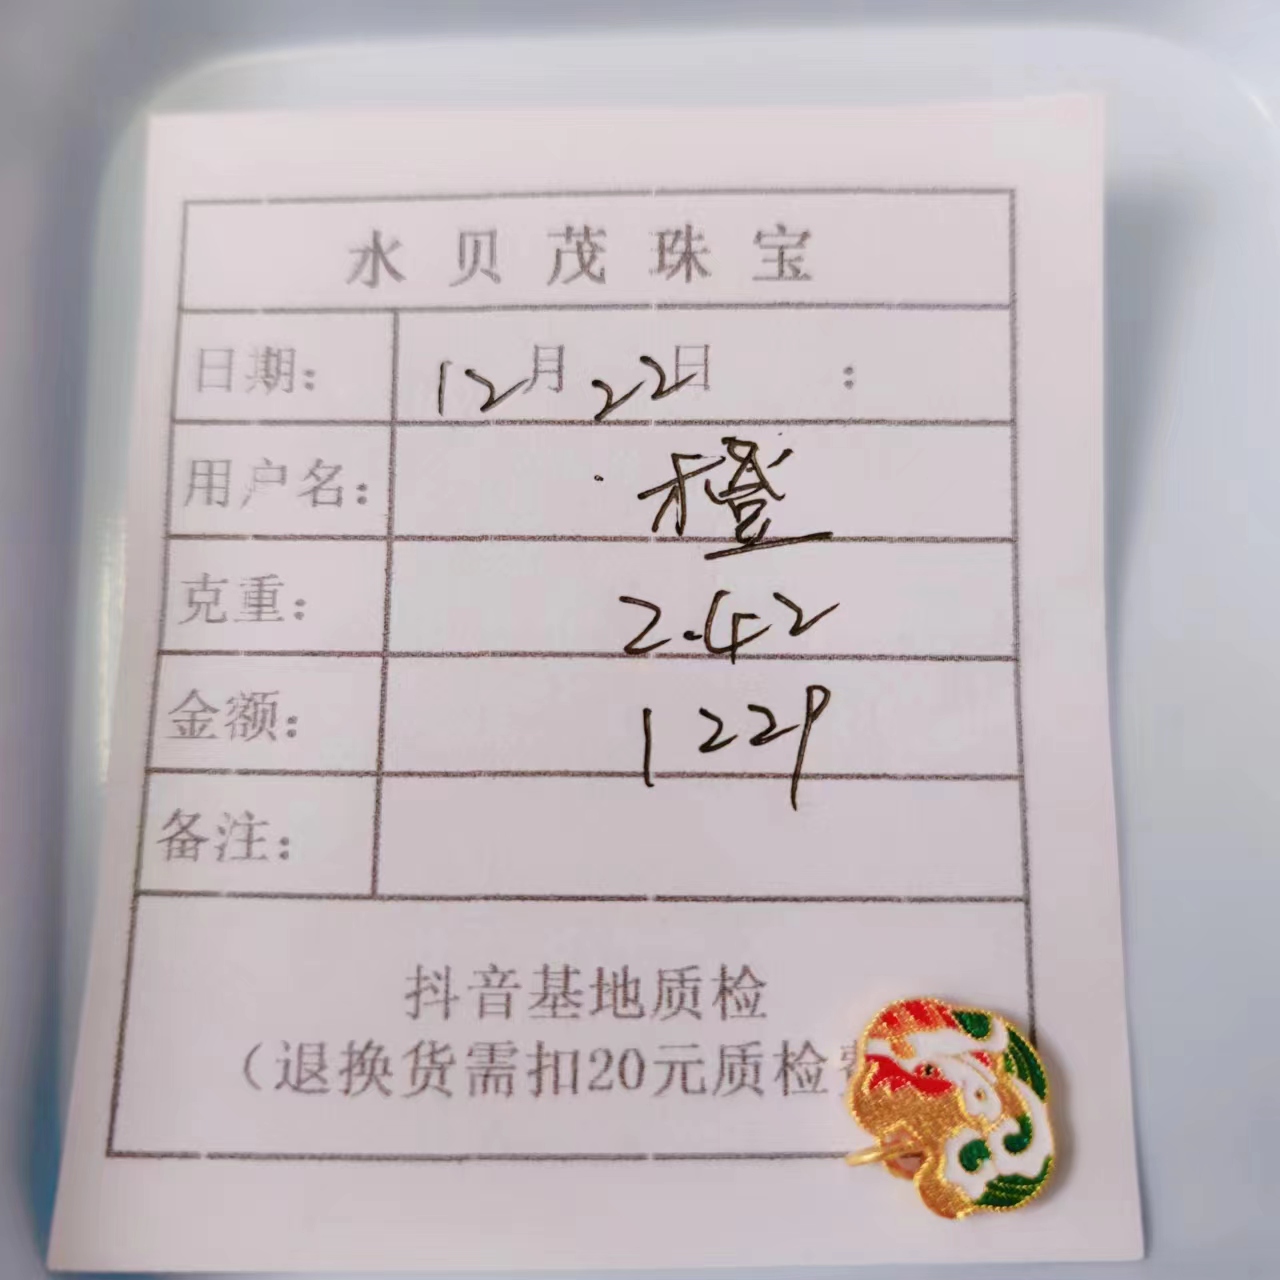 水贝茂珠宝
日期: 12月22日 :
用户名: 橙
克重: 2.42
金额: 1229
备注:
抖音基地质检
（退换货需扣20元质检